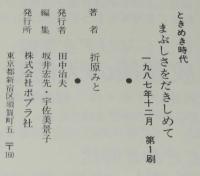 ときめき時代
まぶしさをだきしめて
一九八七年十二月　第1刷
著者　折原みと
発行者　田中治夫
編集　坂井宏先・宇佐美景子
発行所　株式会社ポプラ社
東京都新宿区須賀町五　〒160